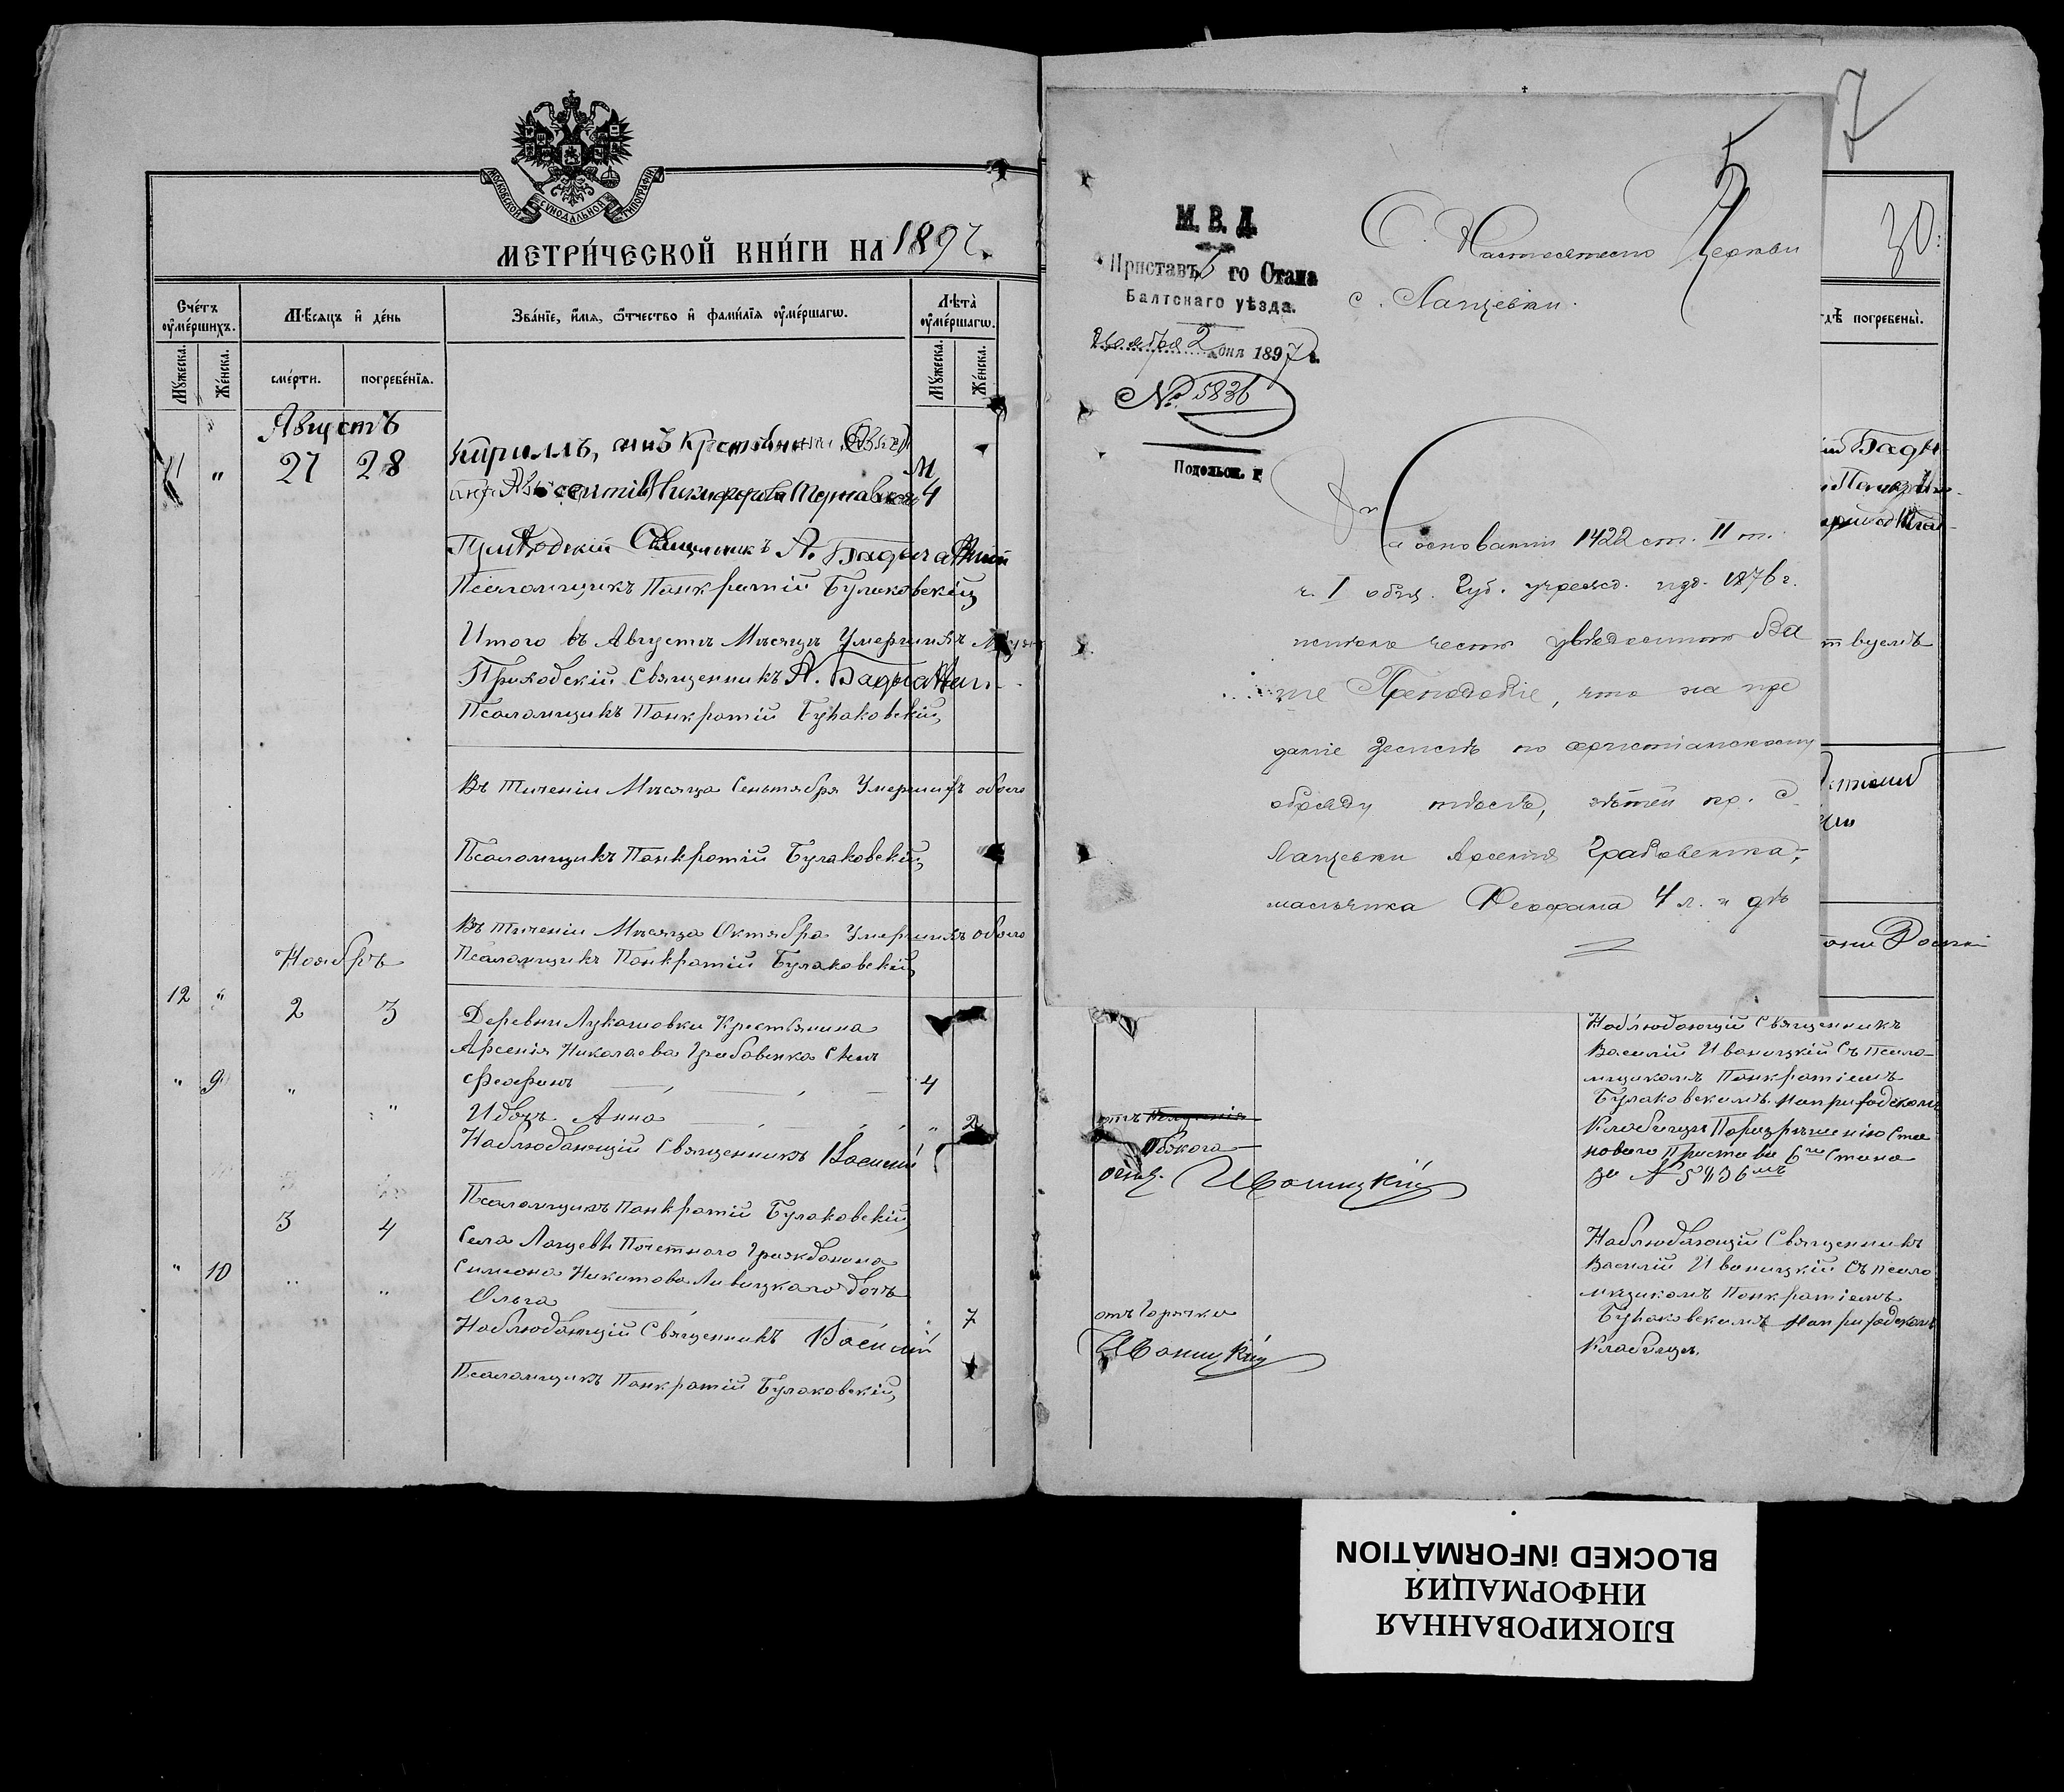 МОСКОВСКОЙ СУНОДАЛЬНОЙ ТИПОГРАФІИ
МЕТРИ́ЧЕСКОЙ КНИ́ГИ НА 1897.
Сче́тъ ᲂу҆ме́ршихъ.
Мѣ́сяцъ и҆ де́нь
Зва́нїе, и҆́мя, ѻ҆́тчество и҆ фами́лїя ᲂу҆ме́ршагѡ.
Лѣ́та ᲂу҆ме́ршагѡ.
Мꙋ́жеска.
Же́нска.
сме́рти.
погребе́нїя.
Мꙋ́жеска.
Же́нска.
Августъ
11 " 27 28
Кириллъ,
4
Приходскій Священникъ А.
Псаломщикъ Панкратій Булаковскій
Итого въ Августѣ Мѣсяцѣ Умершихъ
Приходскій Священникъ А.
Псаломщикъ Панкратій Булаковскій
Въ теченіи Мѣсяца Сентября Умершихъ обоего
Псаломщикъ Панкратій Булаковскій
Въ теченіи Мѣсяца Октября Умершихъ обоего
Псаломщикъ Панкратій Булаковскій
Ноябрь
12 " 2 3 Деревни Лукашовки Крестьянина
Арсенія Николаева Грабовенка Сынъ
" 9 " Феофанъ 4
" И дочь Анна " 2
Наблюдающій Священникъ Василій
Псаломщикъ Панкратій Булаковскій
3 4 Села Лащевки Почетнаго Гражданина
" 10 " " Симеона Никитова Левицкаго дочь
Ольга 7
Наблюдающій Священникъ Василій
Псаломщикъ Панкратій Булаковскій
7
30
М. В. Д.
Приставъ 6 го Стана
Балтскаго уѣзда.
Ноября 2 дня 1897 г.
№ 5836
Подольск. г.
С. Настоятелю Церкви
с. Лащевки.
На основаніи 1422 ст. II т.
ч. I общ. Губ. учрежд. изд. 1876 г.
имѣю честь увѣдомить Ва
ше Преподобіе, что на пре
даніе землѣ по христіанскому
обряду тѣлъ, дѣтей кр. д.
Лащевки Арсенія Грабовенка,
мальчика Феофана 4 л. и дѣ
гдѣ погребены̀.
Наблюдающій Священникъ
Василій Иваницкій съ псало-
мщикомъ Панкратіемъ
Булаковскимъ на приходскомъ
Кладбищѣ По разрѣшенію Ста
новаго Пристава 6го Стана
за № 5836мъ
Иваницкій
Наблюдающій Священникъ
Василій Иваницкій съ псало
мщикомъ Панкратіемъ
Булаковскимъ на приходскомъ
Кладбищѣ.
отъ Горячки
Иваницкій
BLOCKED INFORMATION
ИНФОРМАЦИЯ
БЛОКИРОВАННАЯ